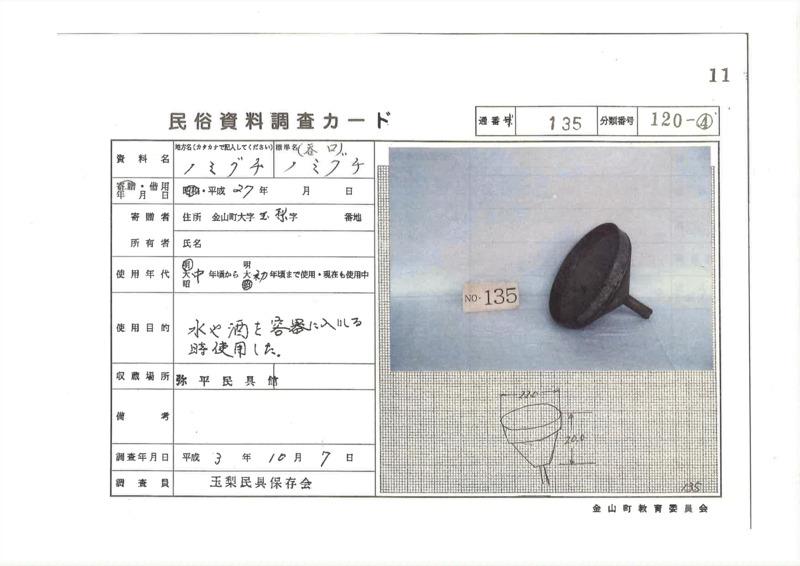 11
民俗資料調査カード
通番号 135 分類番号 120-④
資料名 地方名(カタカナで記入してください) ノミグチ
標準名 ノミグチ
寄贈・借用年月日 昭和・平成 27年 月 日
寄贈者 住所 金山町大字玉梨字 番地
所有者 氏名
使用年代 明大昭 中年頃から 明大昭 初年頃まで使用・現在も使用中
使用目的 水や酒を容器に入れる
時使用した。
収蔵場所 弥平民具館
備考
調査年月日 平成 3年 10月 7日
調査員 玉梨民具保存会
NO. 135
22.0
20.0
135
金山町教育委員会